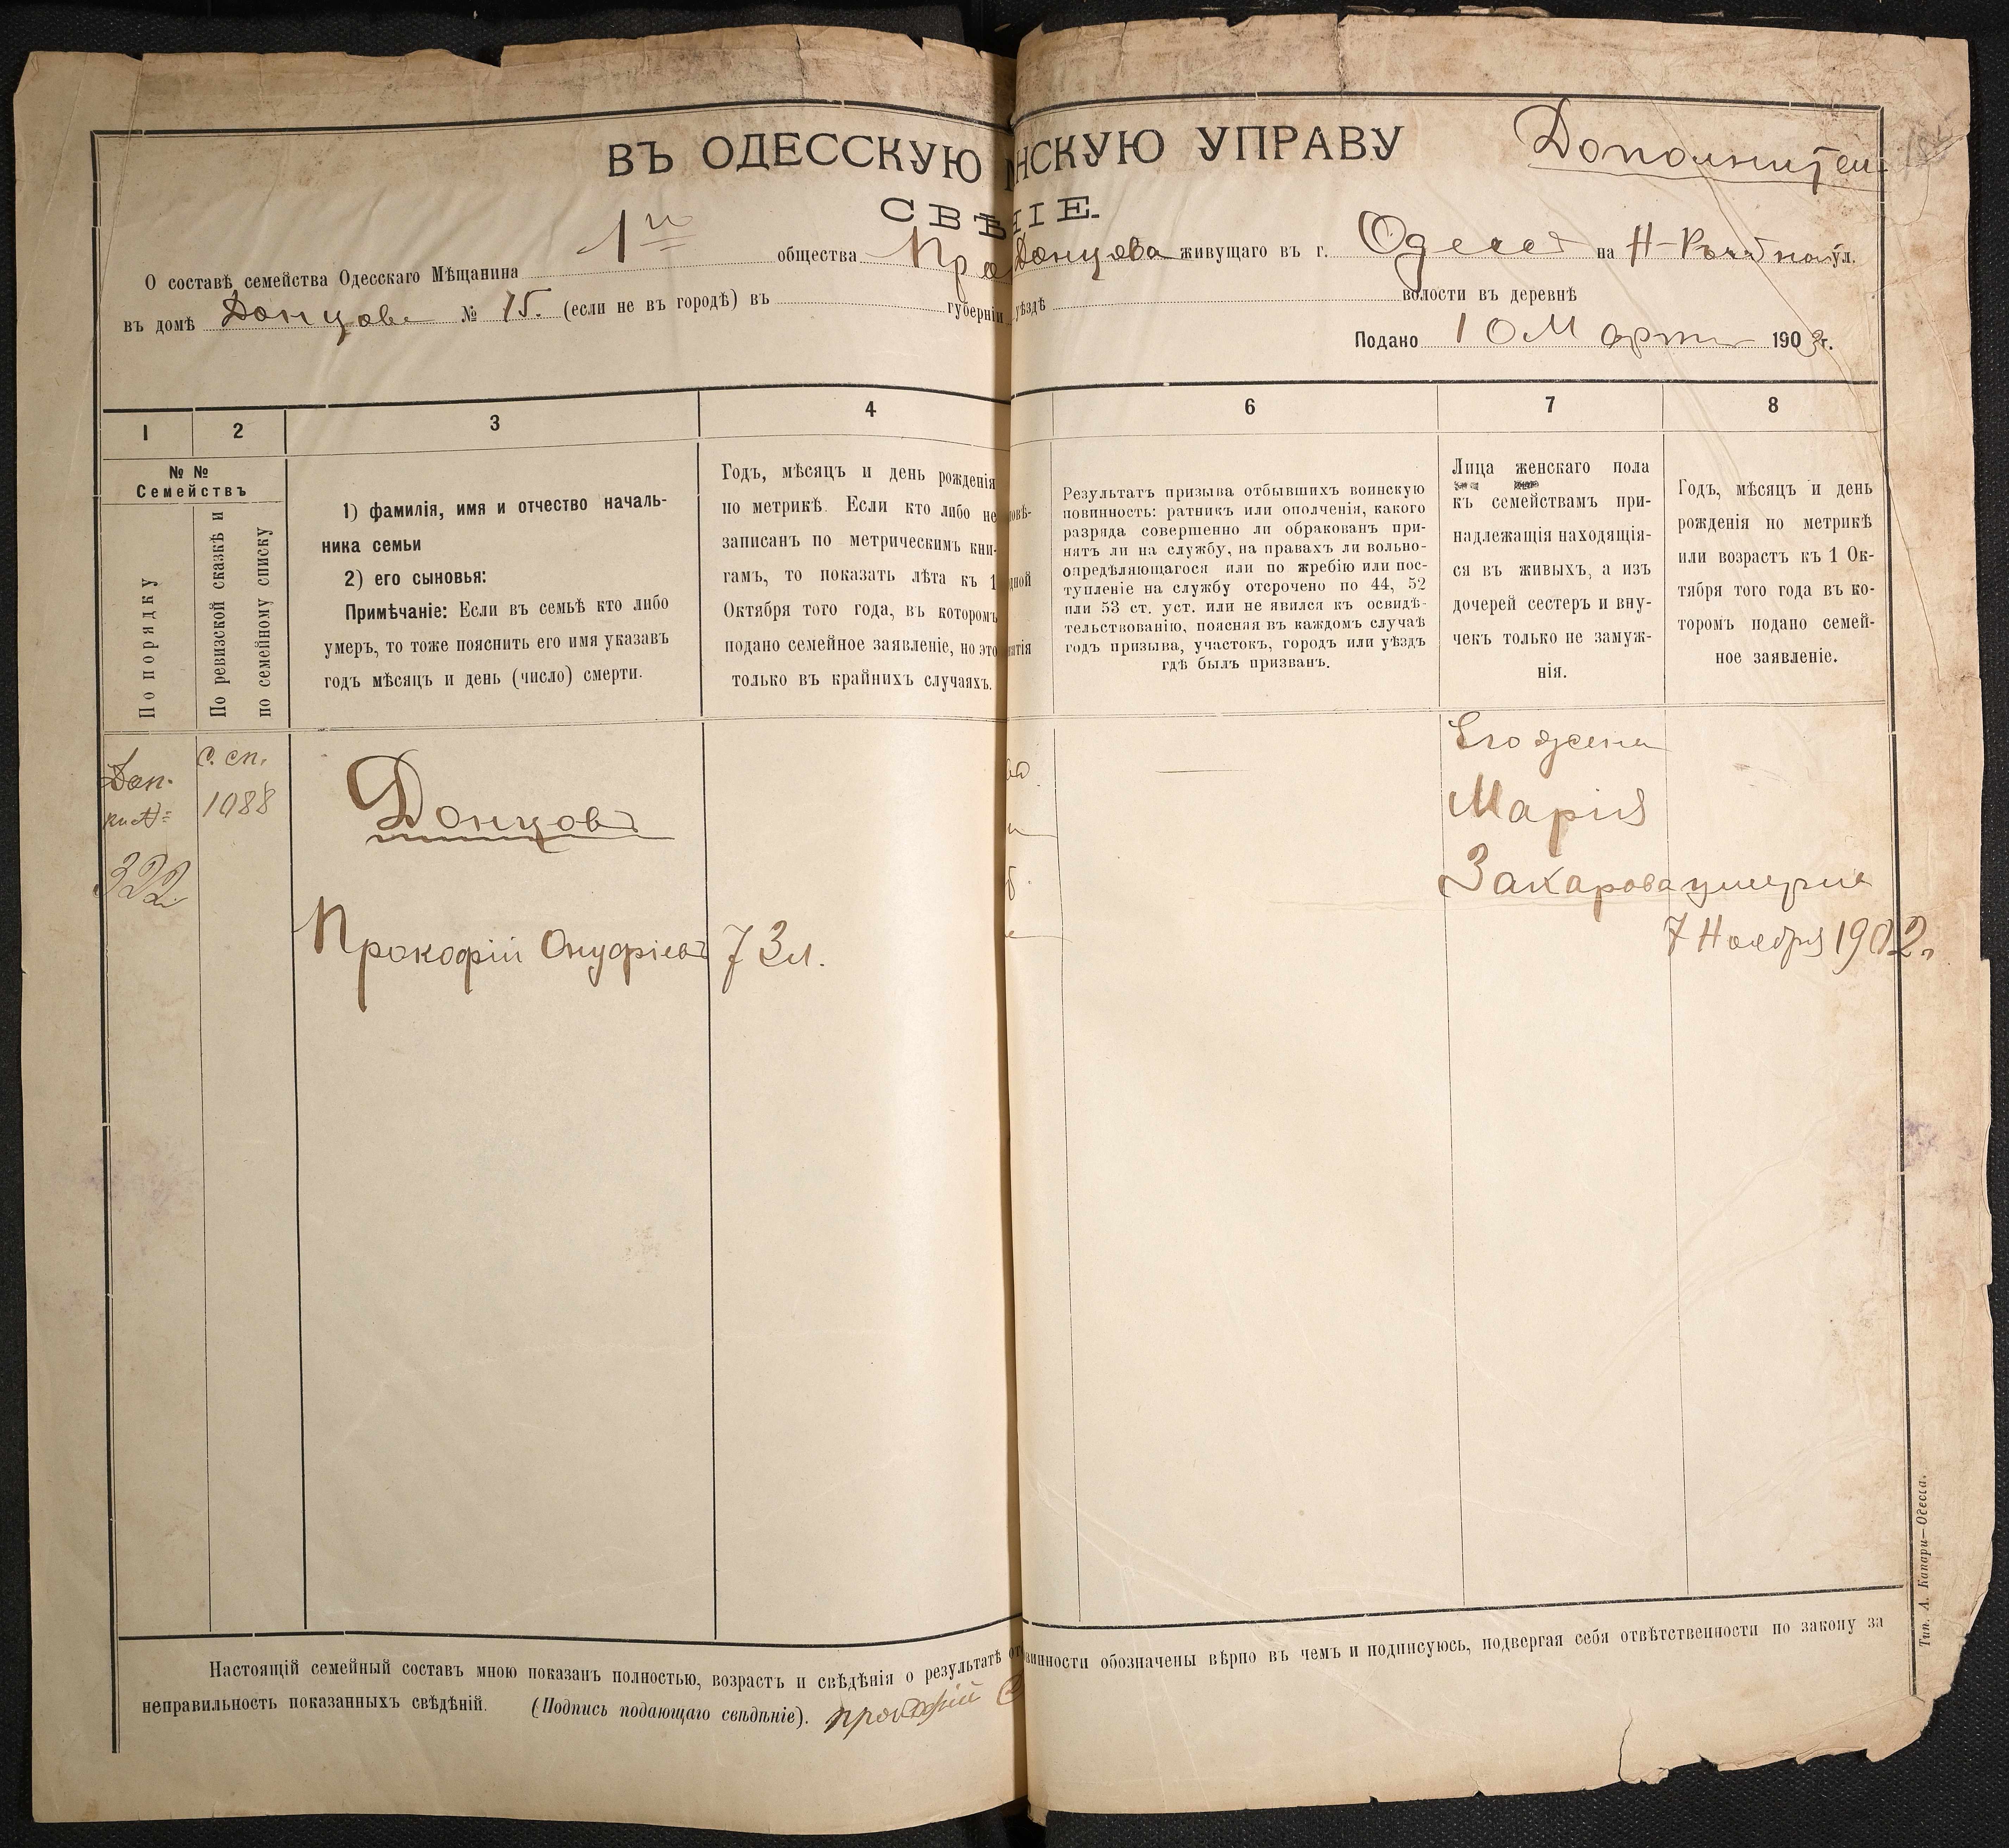 ВЪ ОДЕССКУЮ НСКУЮ УПРАВУ
Дополнител.
СВѢ НІЕ.
О составѣ семейства Одесскаго Мѣщанина 1го общества Про Донцова живущаго въ г. Одессѣ на Н- ул.
въ домѣ Донцова № 15. (если не въ городѣ) въ губерніи уѣздѣ волости въ деревнѣ
Подано 10 Марта 1903 г.
1 2 3 4 6 7 8
№ №
Семействъ
По порядку
По ревизской сказкѣ и
по семейному списку
1) фамилія, имя и отчество началь-
ника семьи
2) его сыновья:
Примѣчаніе: Если въ семьѣ кто либо
умеръ, то тоже пояснить его имя указавъ
годъ мѣсяцъ и день (число) смерти.
Годъ, мѣсяцъ и день рожденія
по метрикѣ. Если кто либо не
записанъ по метрическимъ кни-
гамъ, то показать лѣта къ 1
Октября того года, въ которомъ
подано семейное заявленіе, но это
только въ крайнихъ случаяхъ.
Результатъ призыва отбывшихъ воинскую
повинность: ратникъ или ополченія, какого
разряда совершенно ли обракованъ при-
нятъ ли на службу, на правахъ ли вольно-
опредѣляющагося или по жребію или пос-
тупленіе на службу отсрочено по 44, 52
или 53 ст. уст. или не явился къ освидѣ-
тельствованію, поясняя въ каждомъ случаѣ
годъ призыва, участокъ, городъ или уѣздъ
гдѣ былъ призванъ.
Лица женскаго пола
къ семействамъ при-
надлежащія находящія-
ся въ живыхъ, а изъ
дочерей сестеръ и вну-
чекъ только не замуж-
нія.
Годъ, мѣсяцъ и день
рожденія по метрикѣ
или возрастъ къ 1 Ок-
тября того года въ ко-
торомъ подано семей-
ное заявленіе.
Доп.
кн №
322
с. сп.
1088
Донцовъ
Прокофій Онуфріевъ 73 л.
Его жена
Марія
Захарова умерла
7 Ноября 1902 г.
Настоящій семейный составъ мною показанъ полностью, возрастъ и свѣдѣнія о результатѣ от винности обозначены вѣрно въ чемъ и подписуюсь, подвергая себя отвѣтственности по закону за
неправильность показанныхъ свѣдѣній. (Подпись подающаго свѣдѣніе). прокофій
Тип. А. Капари—Одесса.